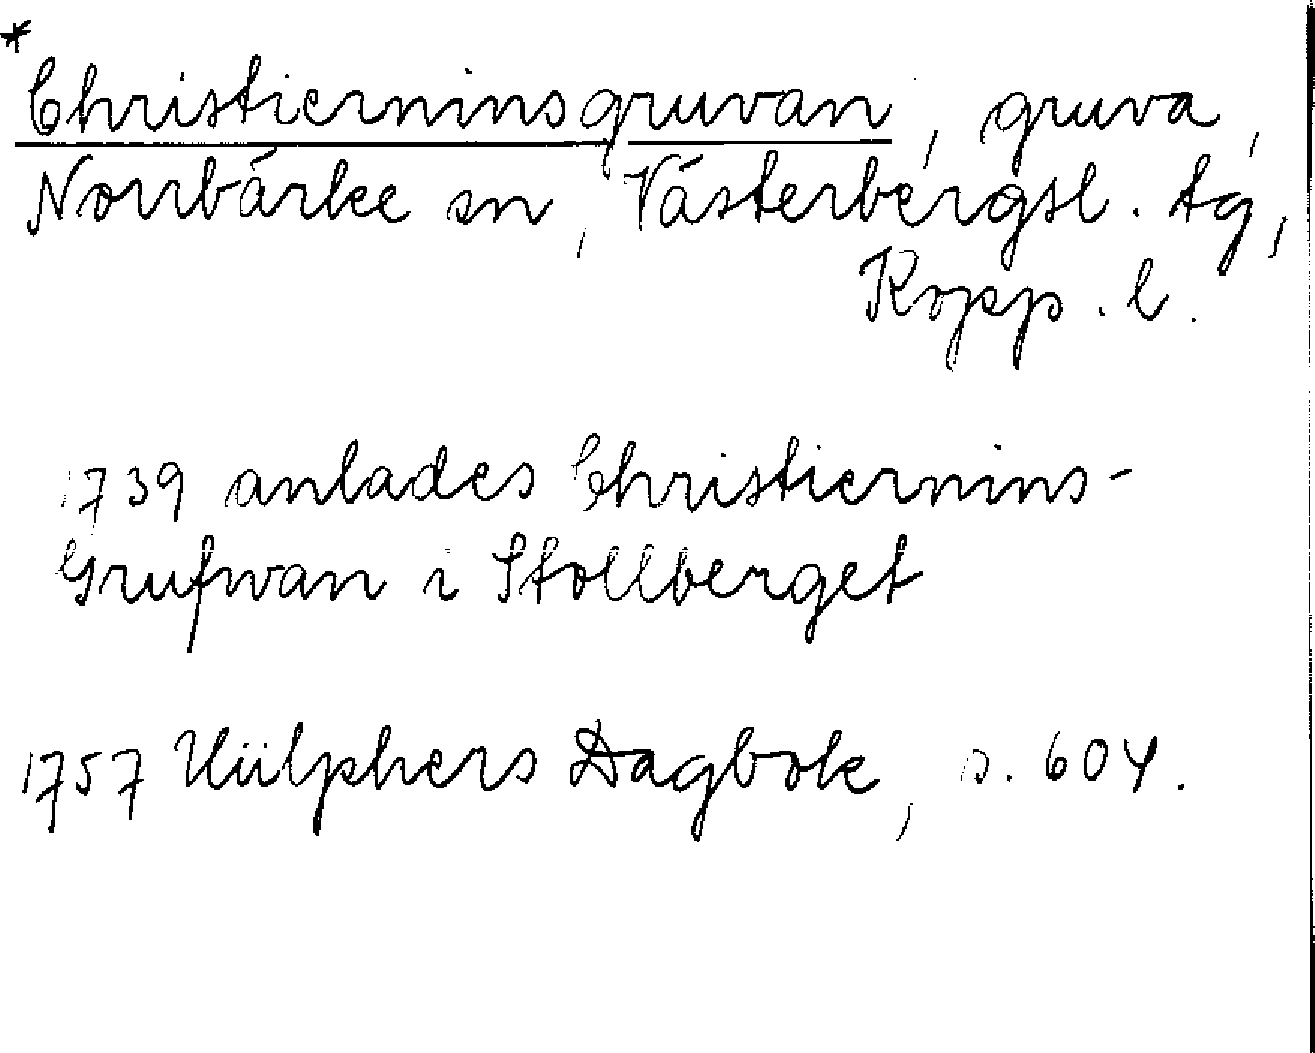 *
Christierninsgruvan, gruva,
Norrbärke sn, Västerbergsl. tg,
Kopp. l.
1739 anlades Christiernins-
Grufwan i Stollberget
1757 Hülphers Dagbok, s. 604.